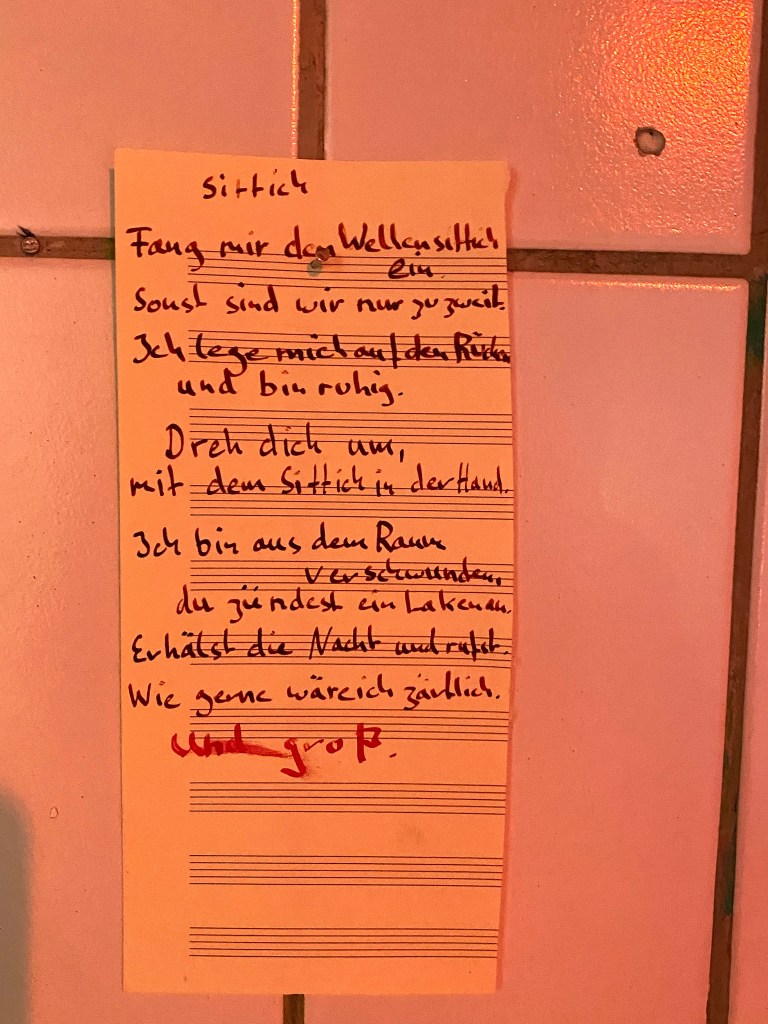 Sittich
Fang mir den Wellensittich
ein.
Sonst sind wir nur zu zweit.
Ich lege mich auf den Rücken
und bin ruhig.
Dreh dich um,
mit dem Sittich in der Hand.
Ich bin aus dem Raum
verschwunden,
du zündest ein Laken an.
Erhälst die Nacht und rufst.
Wie gerne wäre ich zärtlich.
Und groß.